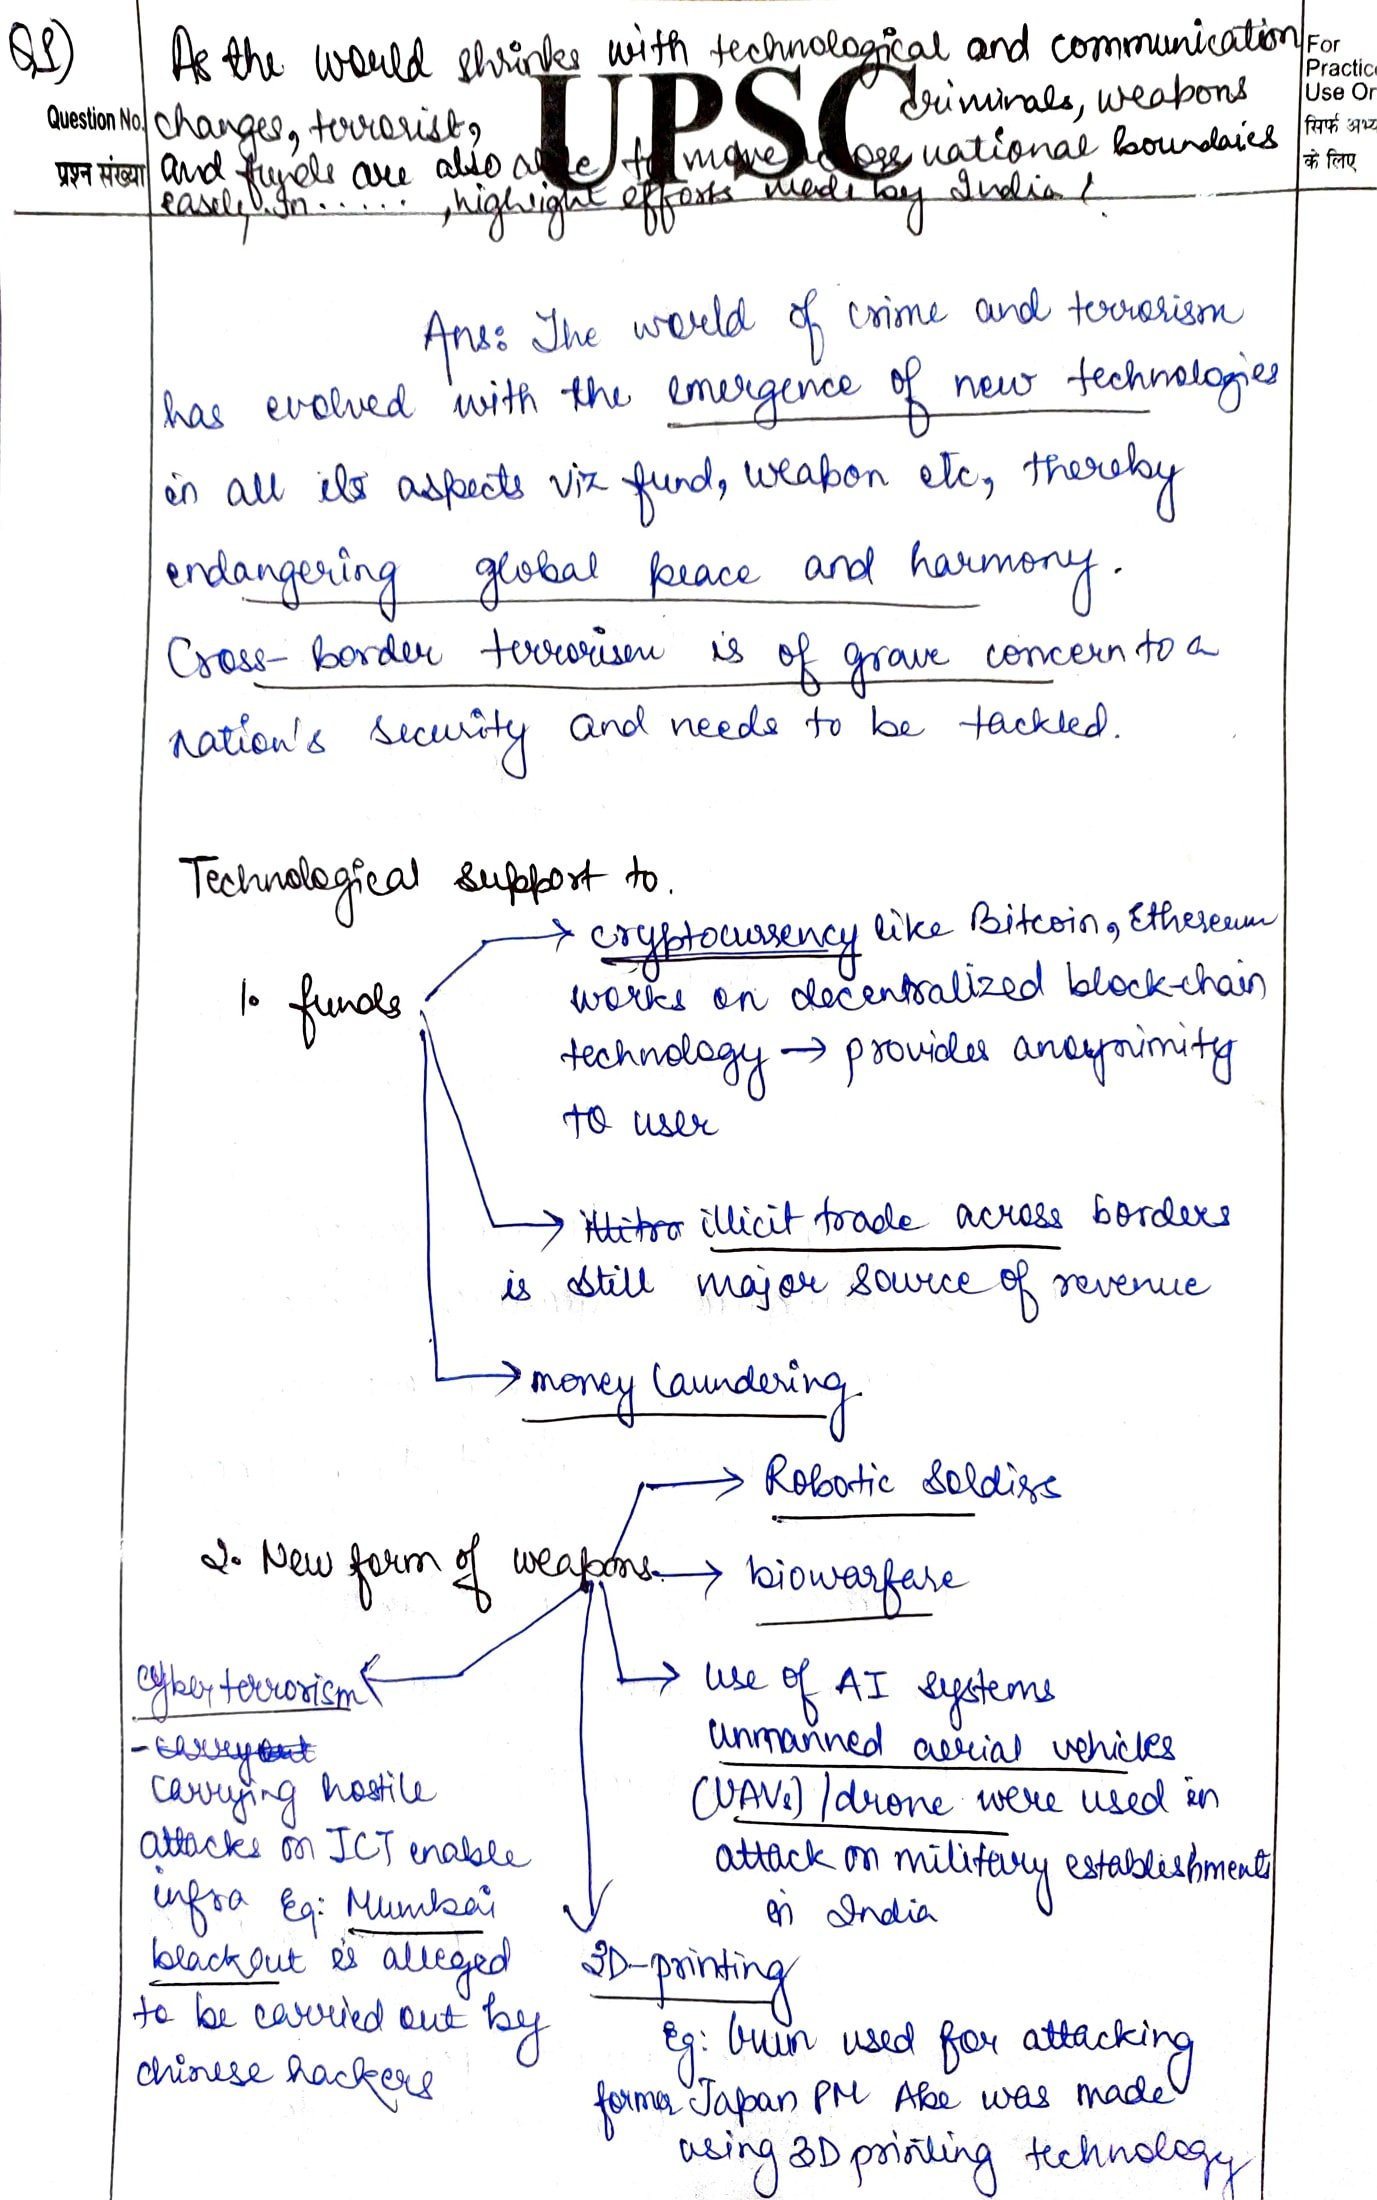 Q1)
As the world shrinks with technological and communication
changes, terrorist, criminals, weapons
and funds are also able to move across national boundaries
easely. In ......, highlight efforts made by India!
UPSC
Question No.
प्रश्न संख्या
For
Practice
Use On
सिर्फ अभ्य
के लिए
Ans: The world of crime and terrorism
has evolved with the emergence of new technologies
in all its aspects viz fund, weapon etc, thereby
endangering global peace and harmony.
Cross-border terrorism is of grave concern to a
nation's security and needs to be tackled.
Technological support to.
1. funds
→ cryptocurrency like Bitcoin, Ethereum
works on decentralized block-chain
technology → provides anoynimity
to user
→ illicit trade across borders
is still major source of revenue
→ money laundering
2. New form of weapons
→ Robotic soldiers
→ biowarfare
→ use of AI systems
unmanned aerial vehicles
(UAVs) / drone were used in
attack on military establishments
in India
cyber terrorism
- carry out
carrying hostile
attacks on ICT enable
infra Eg: Mumbai
blackout is alleged
to be carried out by
chinese hackers
3D-printing
Eg: Guun used for attacking
former Japan PM Abe was made
using 3D printing technology